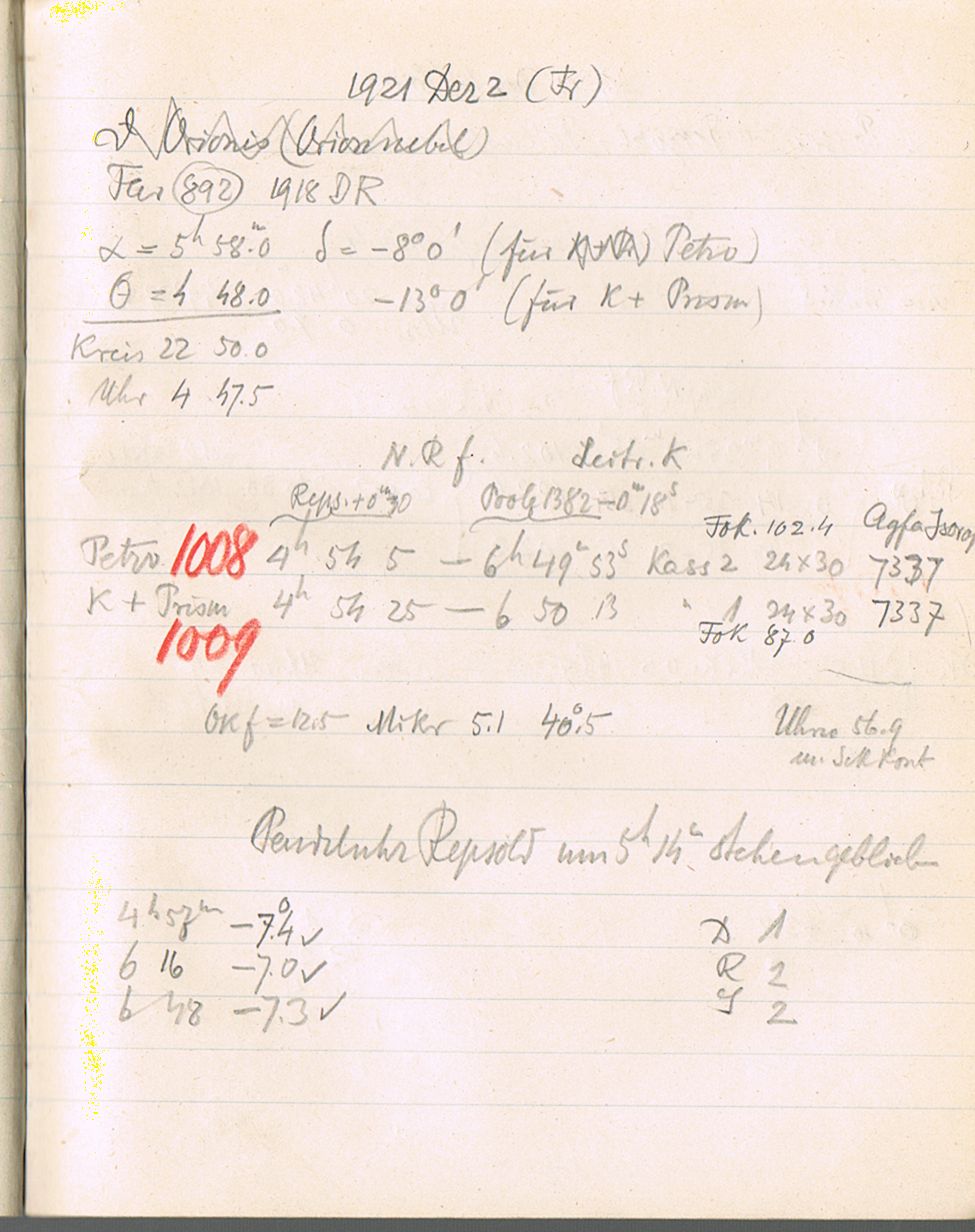 1921 Dez 2 (Fr)
ϑ Orionis (Orionnebel)
Für 892 1918 DR
α = 5h 58m.0 δ = -8° 0' (für K+Pr) Petro)
θ = 4 48.0 -13° 0' (für K + Prism)
Kreis 22 50.0
Uhr 4 47.5
N.R f. Leitr. K
Reps. +0m30 1382 -0m 18s
Fok. 102.4 Agfa Isorap
Petro 1008 4h 54 5 — 6h 49m 53s Kass 2 24×30 7337
K + Prism 4h 54 25 — 6 50 13 " 1 24×30 7337
1009 Fok 87.0
Okf = 12.5 Mikr 5.1 40°.5 56.9
Pendeluhr Repsold um 5h 14m stehengeblieben
4h 57m -7°.4 ✓ D 1
6 16 -7.0 ✓ R 2
6 48 -7.3 ✓ S 2